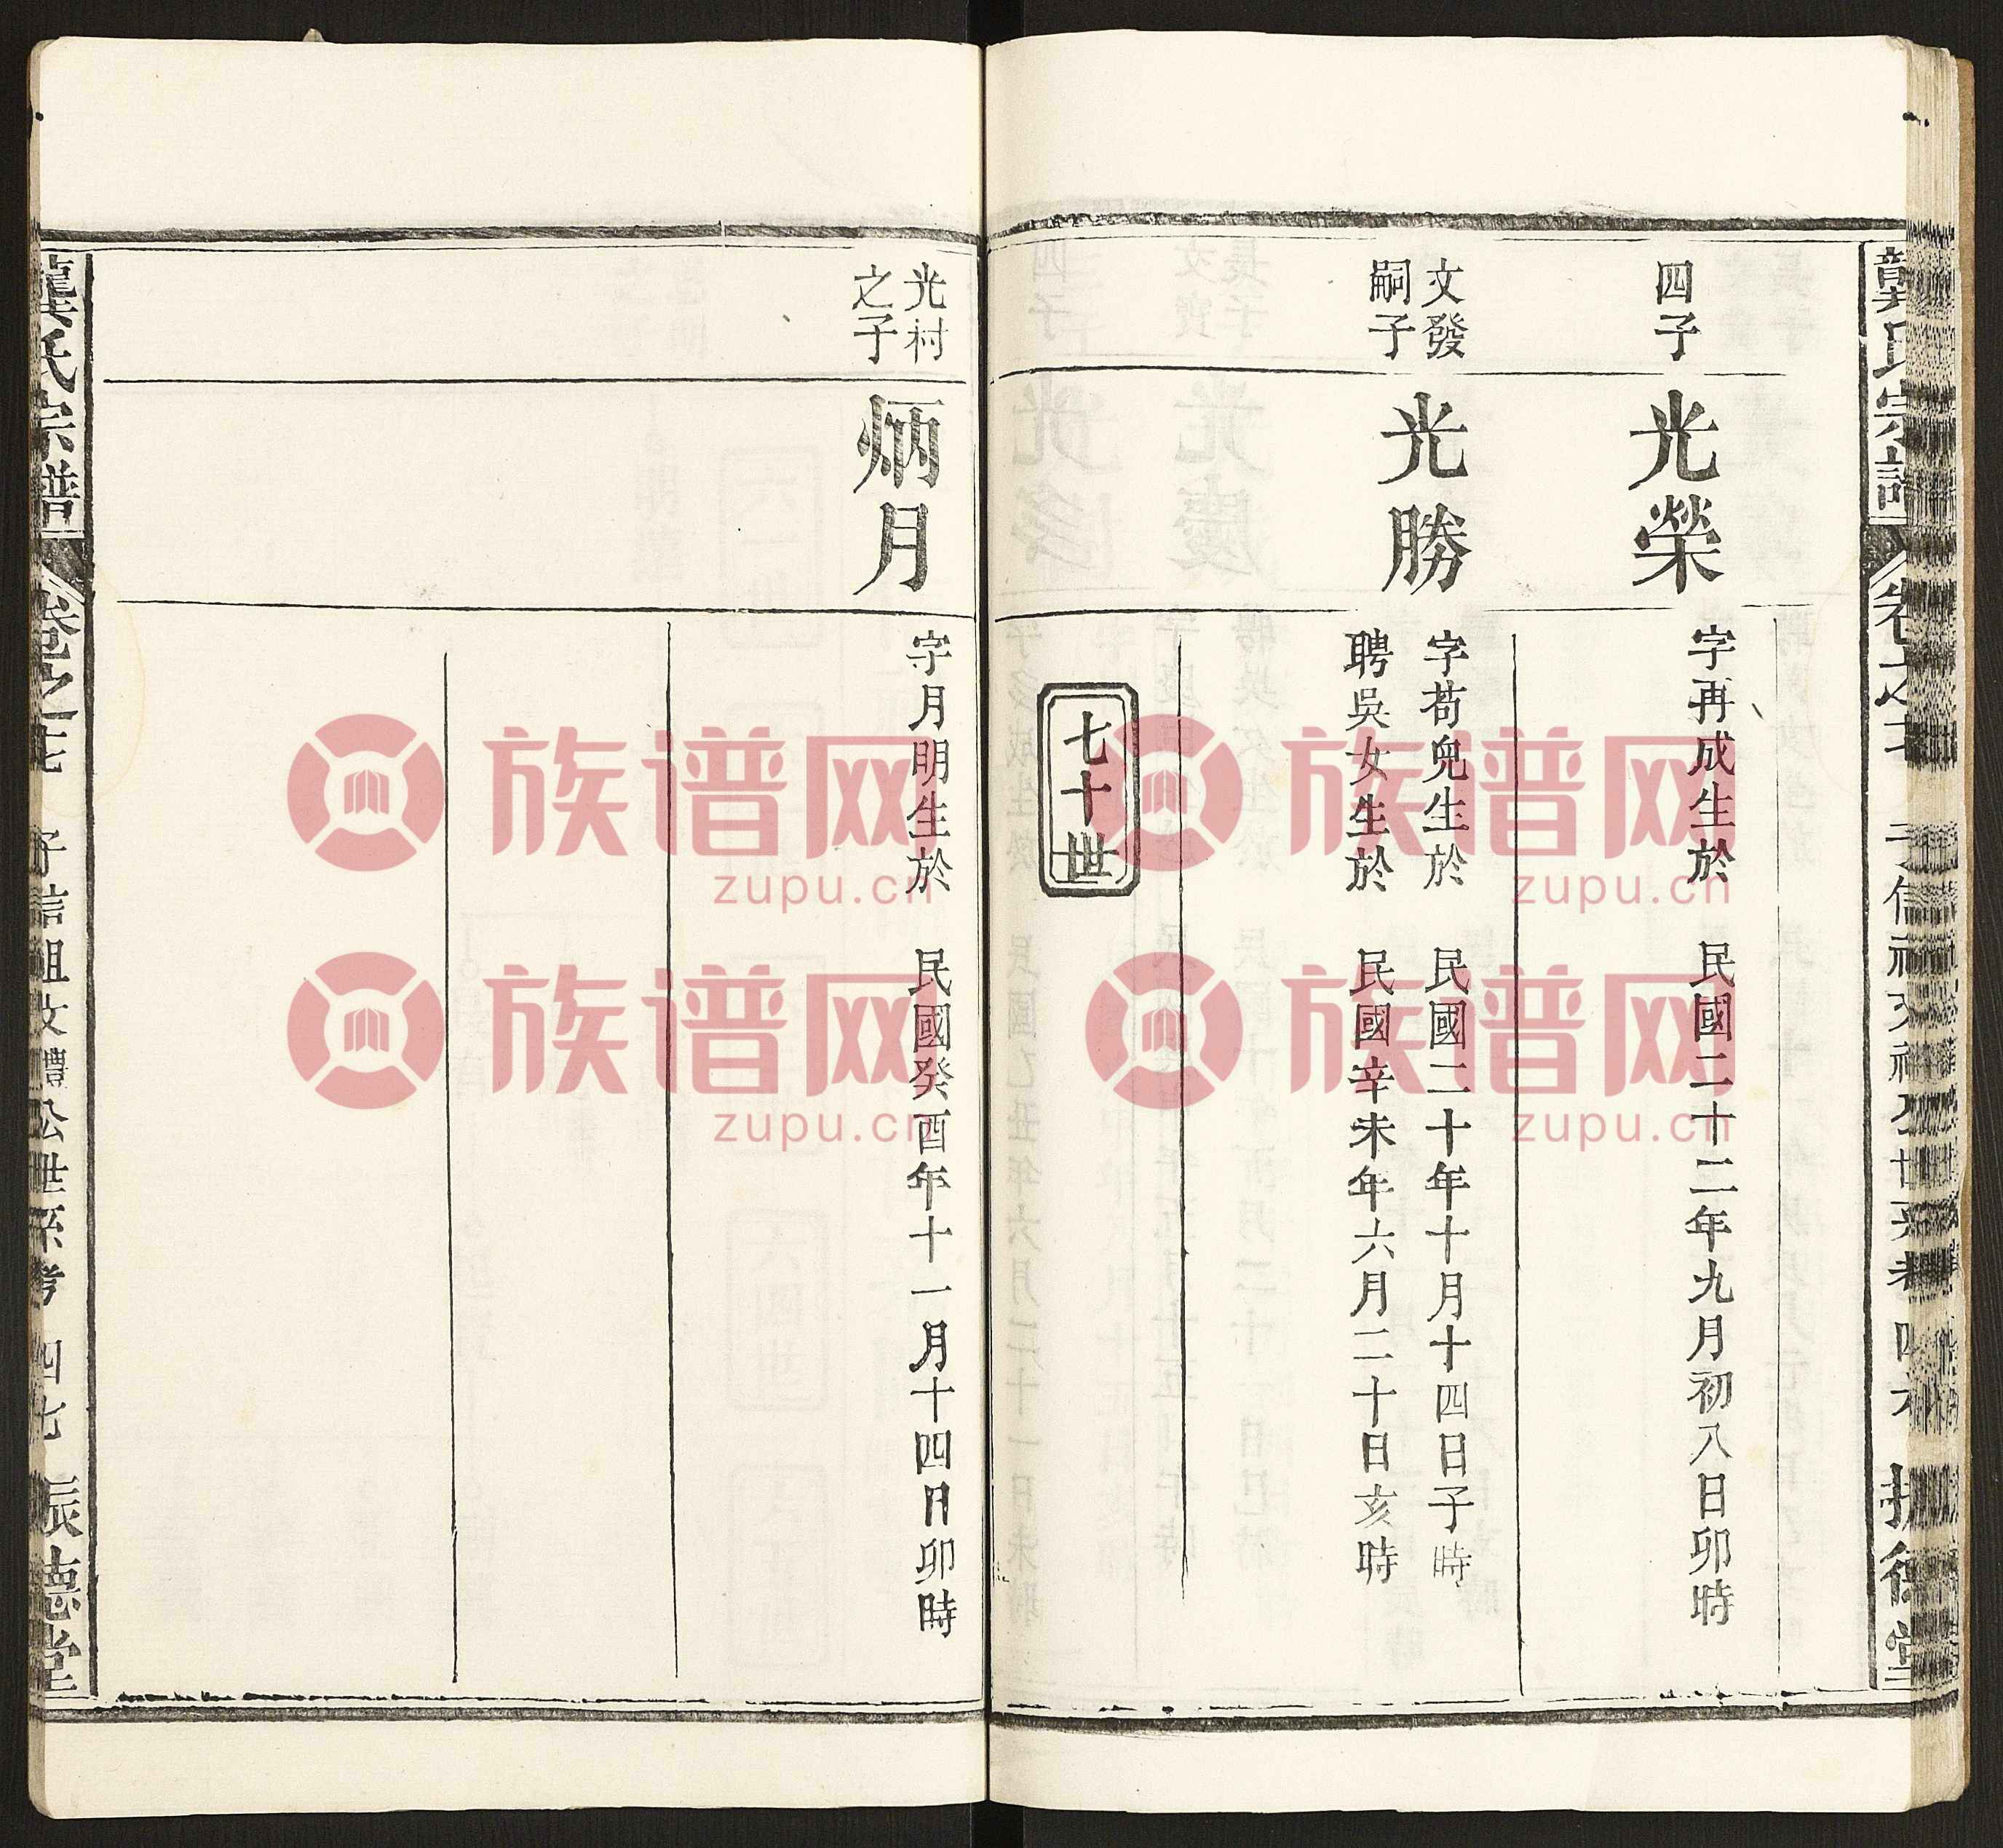 龔氏宗譜
四子
光榮
字再成生於 民國二十二年九月初八日卯時
文發
嗣子
光勝
字苟兒生於 民國二十年十月十四日子時
聘吳女生於 民國辛未年六月二十日亥時
七十世
光村
之子
炳月
字月明生於 民國癸酉年十一月十四日卯時
龔氏宗譜 卷之 子信祖文禮公世系考 四七 振德堂
族谱网
zupu.cn
族谱网
zupu.cn
族谱网
zupu.cn
族谱网
zupu.cn